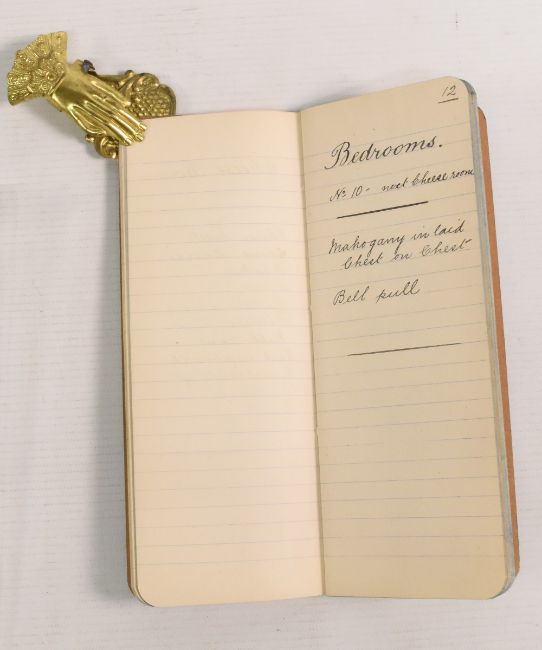 12
Bedrooms.
No 10 - next Cheese room
Mahogany in laid
Chest on Chest
Bell pull